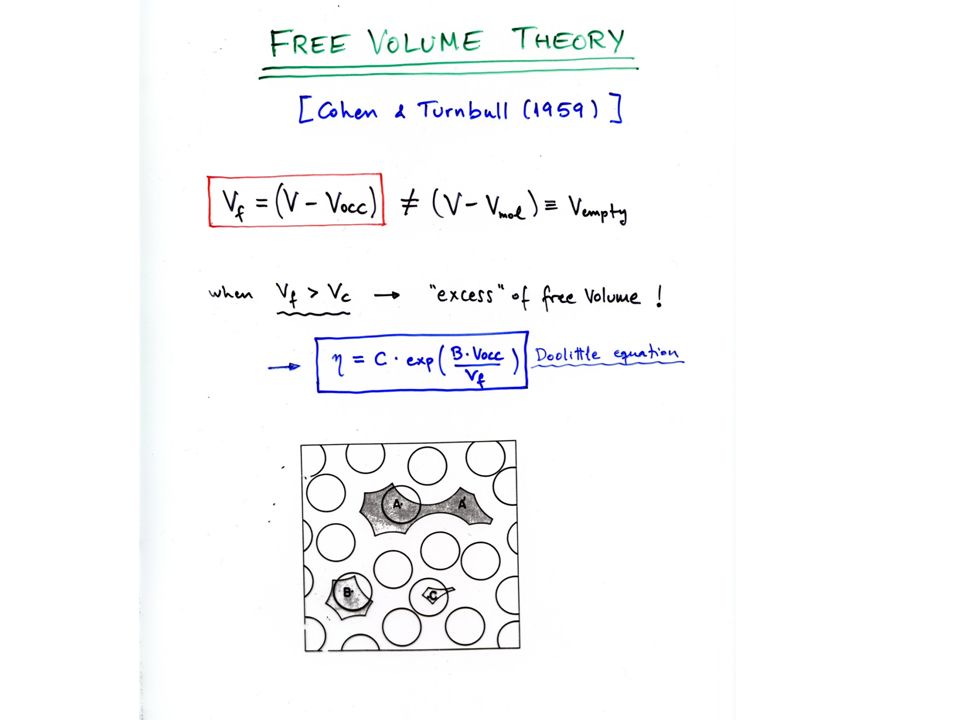 FREE VOLUME THEORY
[Cohen & Turnbull (1959)]
Vf = (V - Vocc) ≠ (V - Vmol) ≡ Vempty
when Vf > Vc → "excess" of free volume !
→ η = C · exp(B·Vocc / Vf) Doolittle equation
A A'
B C